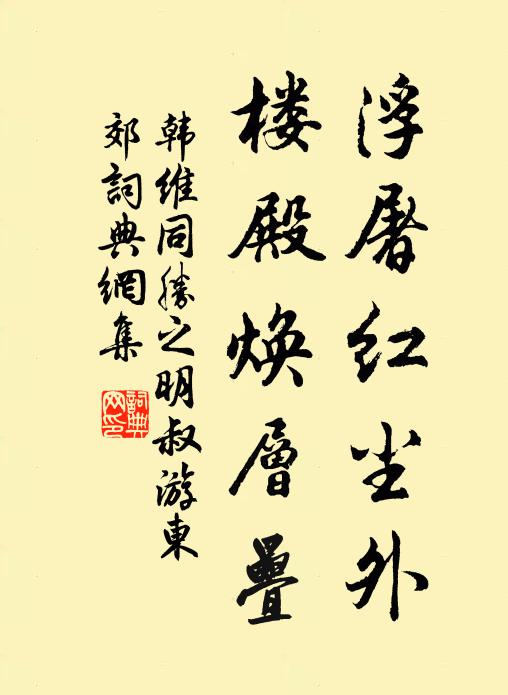 浮屠红尘外
楼殿焕層疊
韩维同勝之明叔游東
郊詞典網集
詞典
网印